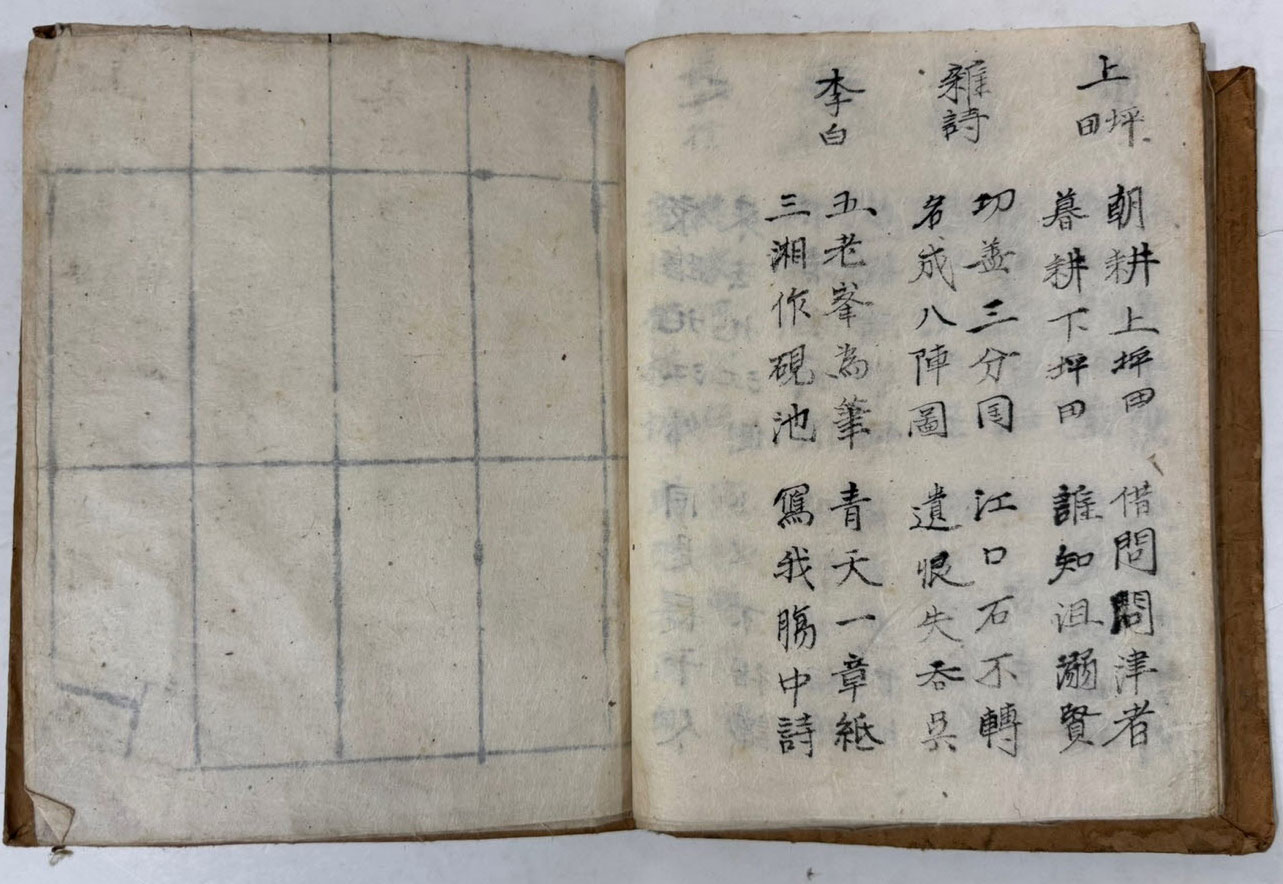 上坪田
朝耕上坪田 借問問津者
暮耕下坪田 誰知沮溺賢
雜詩
功盖三分囯 江口石不轉
名成八陣圖 遺恨失吞吳
李白
五老峯為筆 青天一章紙
三湘作硯池 寫我膓中詩